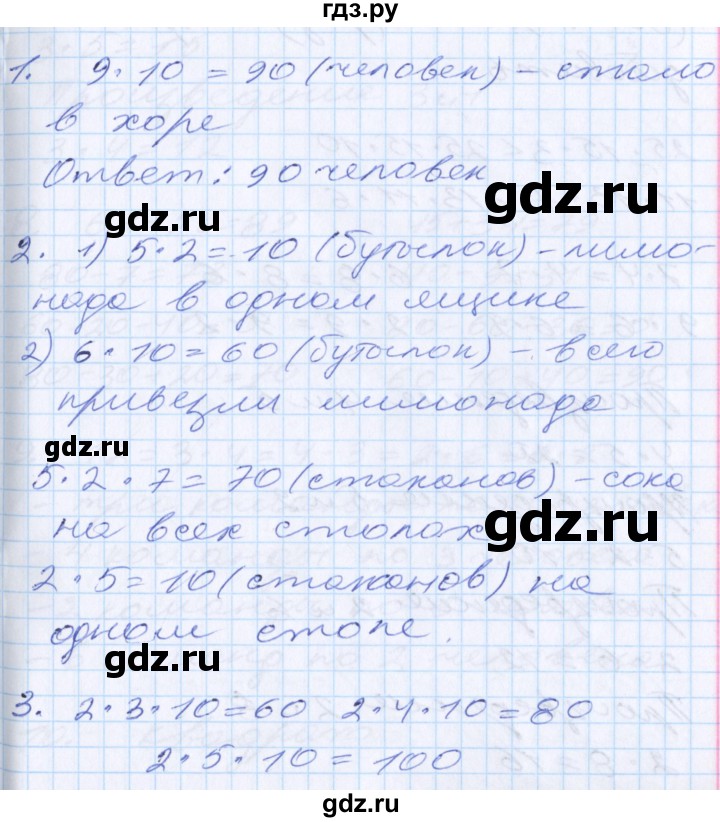 гдз.ру
1. 9·10 = 90 (человек) - стало
в хоре
Ответ: 90 человек
gdz.ru
gdz.ru
2. 1) 5·2 = 10 (бутылок) - лимо-
нада в одном ящике
2) 6·10 = 60 (бутылок) - всего
привезли лимонада
gdz.ru
5·2·7 = 70 (стаканов) - сока
на всех столах
gdz.ru
2·5 = 10 (стаканов) на
одном столе.
gdz.ru
3. 2·3·10 = 60 2·4·10 = 80
2·5·10 = 100
gdz.ru